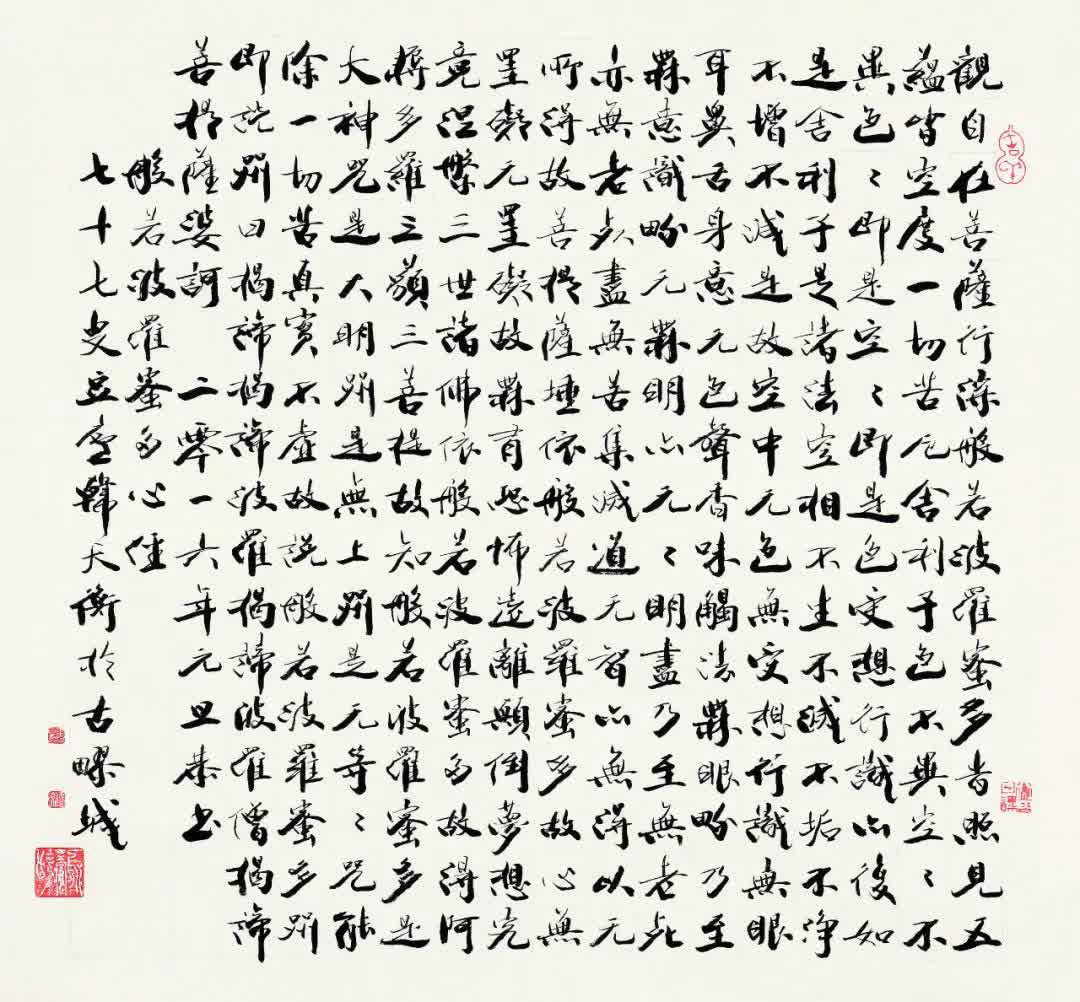 觀自在菩薩行深般若波羅蜜多旹照見五
蘊皆空度一切苦厄舍利子色不異空〻不
異色〻即是空〻即是色受想行識亦復如
是舍利子是諸法空相不生不滅不垢不淨
不增不減是故空中无色無受想行識無眼
耳鼻舌身意无色聲香味觸法無眼界乃至
無意識界无無明亦无〻明盡乃至無老死
亦無老死盡無苦集滅道无智亦無得以无
所得故菩提薩埵依般若波羅蜜多故心無
罣礙无罣礙故無有恐怖遠離顛倒夢想究
竟涅槃三世諸佛依般若波羅蜜多故得阿
耨多羅三藐三菩提故知般若波羅蜜多是
大神咒是大明咒是無上咒是无等〻咒能
除一切苦真實不虛故說般若波羅蜜多咒
即說咒曰揭諦揭諦波羅揭諦波羅僧揭諦
菩提薩婆訶 二零一六年元旦恭書
般若波羅蜜多心經
七十七叟豆廬韓天衡於古疁城